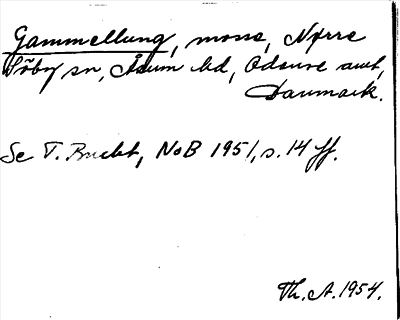 Gammellung, mosse, Nørre
Söby sn, Åsum hd, Odense amt,
Danmark.
Se T. Bucht, NoB 1951, s. 14 ff.
Th. A. 1954.